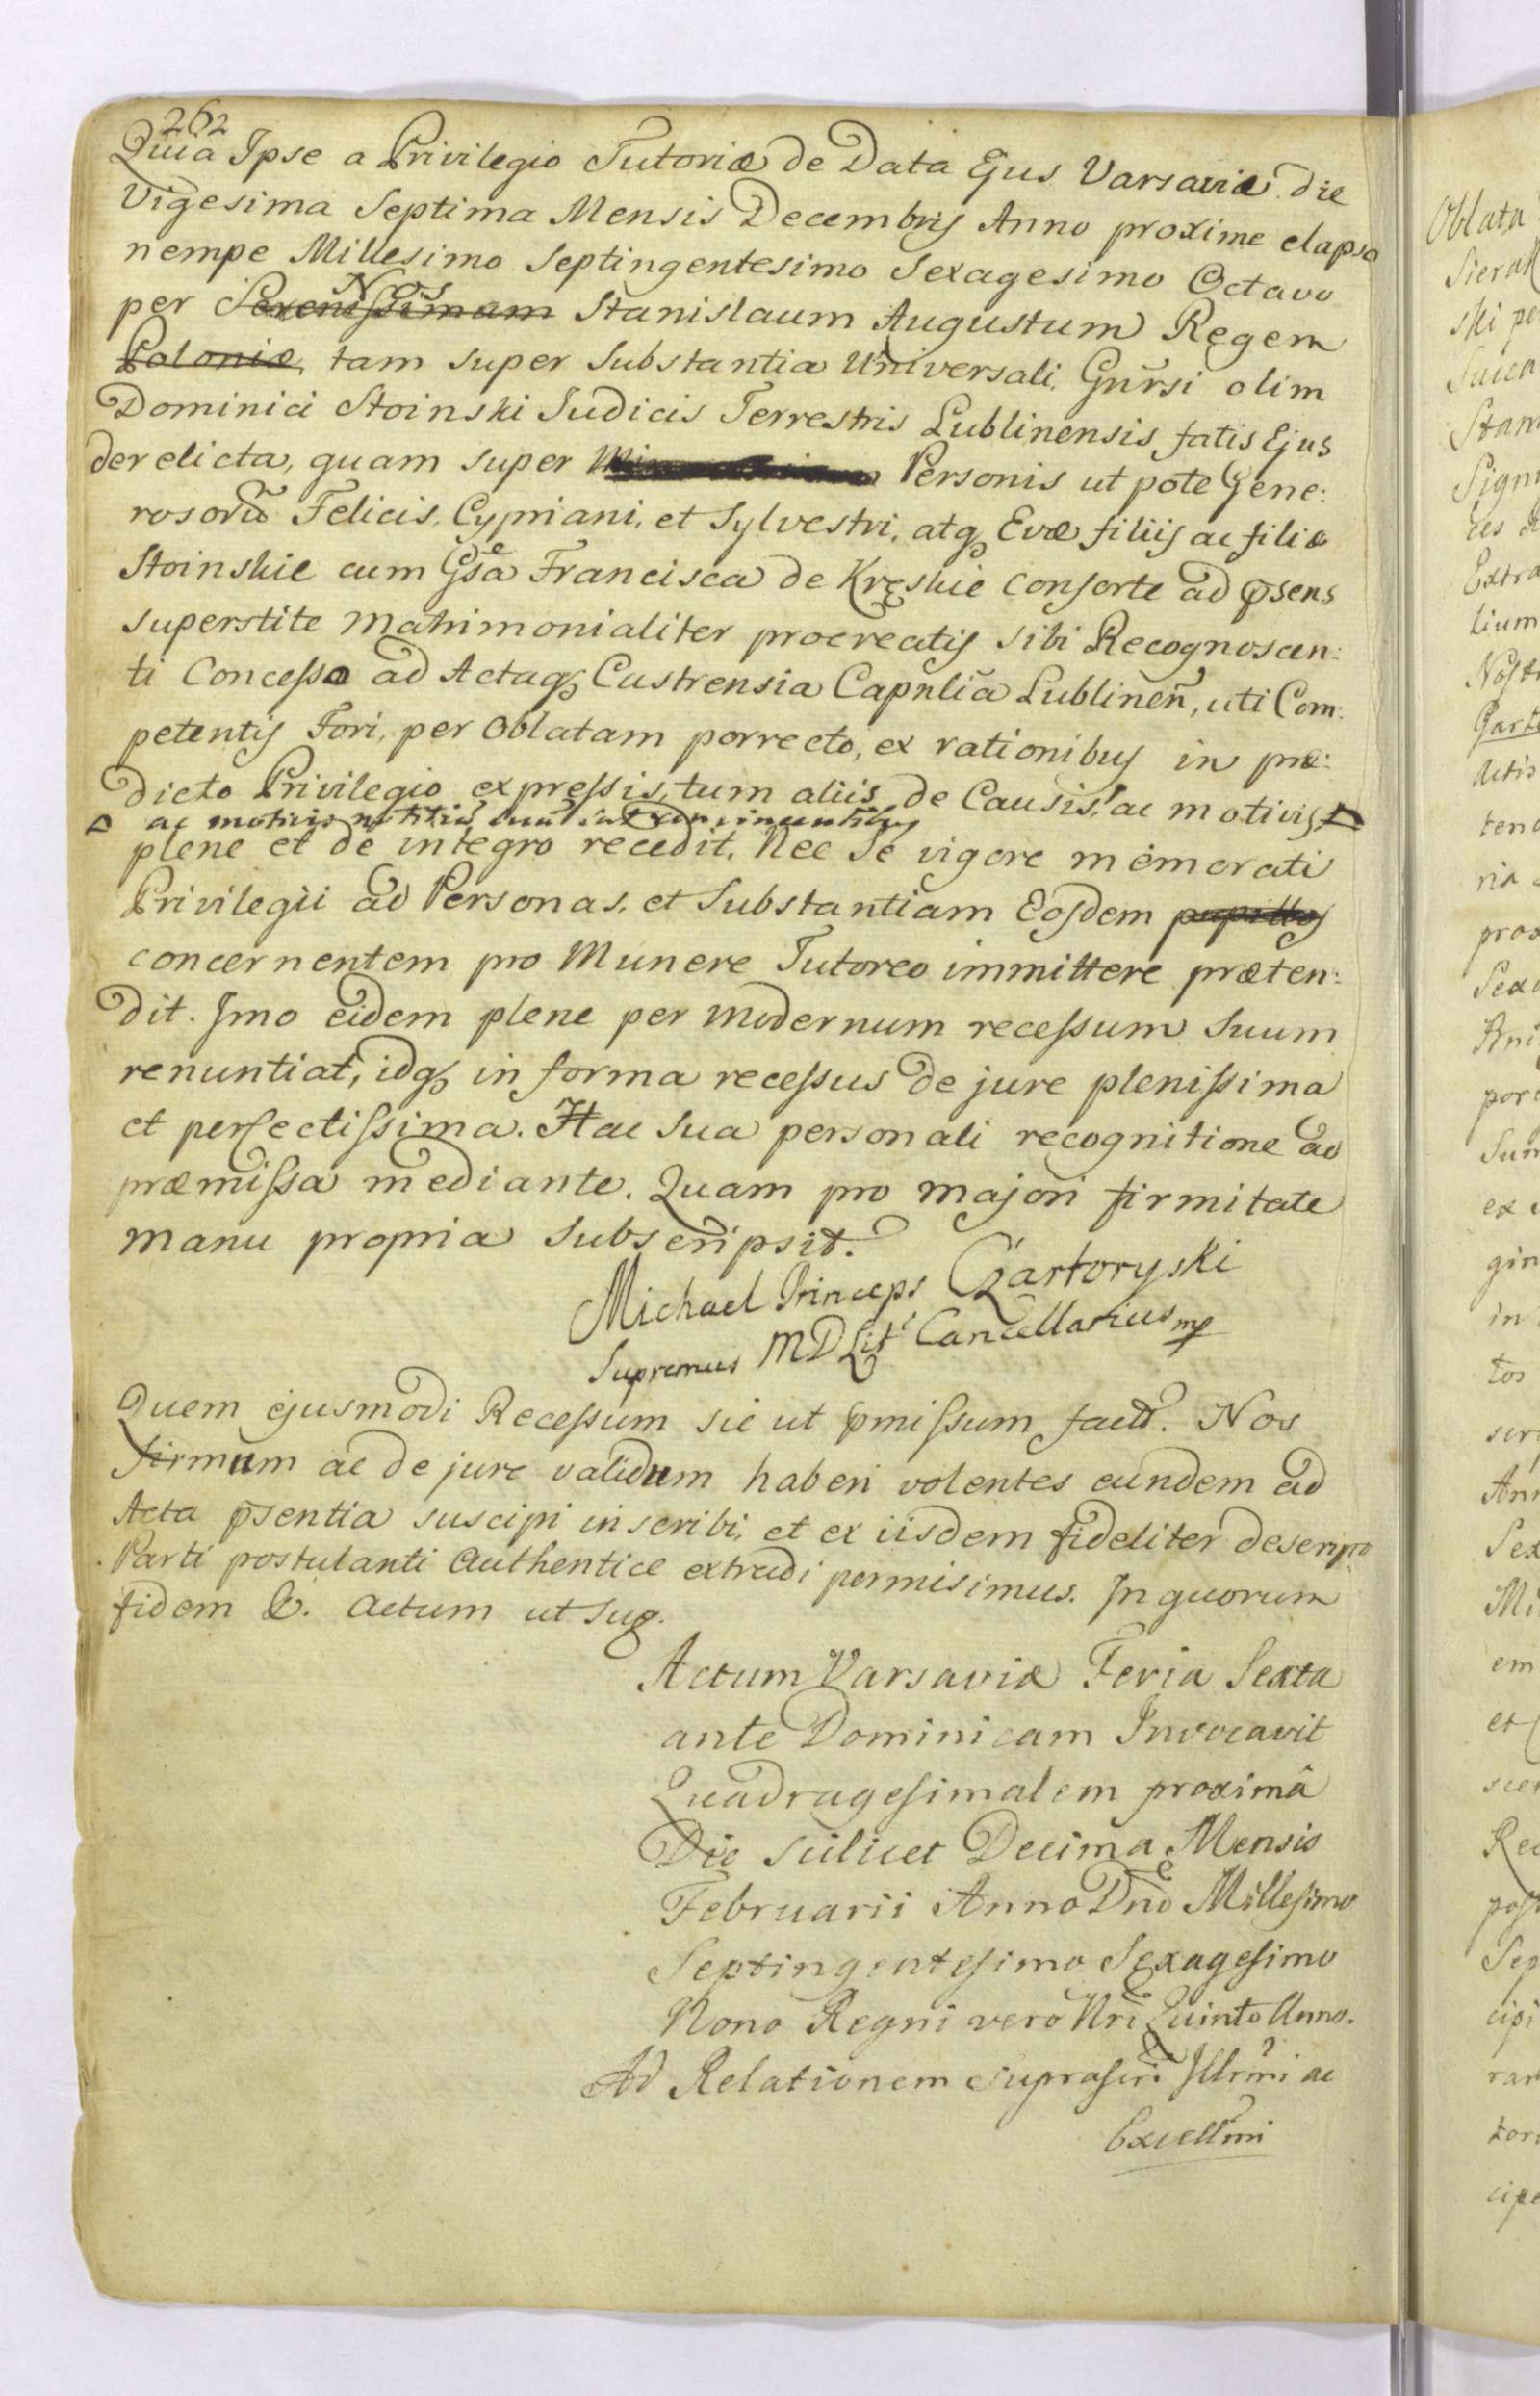 262
Quia Ipse a Privilegio Tutoriæ de Data Ejus Varsaviæ die
Vigesima Septima Mensis Decembris Anno proxime elapso
nempe Millesimo Septingentesimo Sexagesimo Octavo
Nos
per Serenissimum Stanislaum Augustum Regem
Poloniæ, tam super Substantia Universali, Gnrsi olim
Dominici Stoinski Judicis Terrestris Lublinensis fatis Ejus
derelicta, quam super Personis ut pote Gene:
rosorũ Felicis, Cypriani, et Sylvestri, atq Evæ filiis ac filiæ
Stoinskie cum Gsa Francisca de Kręskie Consorte ad pñsens
superstite matrimonialiter procreatis sibi Recognoscen:
ti Concesso ad Actaq Castrensia Capnlia Lublineñ, uti Com:
petentis Fori, per Oblatam porrecto, ex rationibus in præ:
dicto Privilegio expressis, tum aliis de Causis, ac motivis
ac motivis notitiã suã
plene et de integro recedit. Nec Se vigore memorati
Privilegii ad Personas, et Substantiam Eosdem pupillos
concernentem pro Munere Tutoreo immittere præten:
dit. Imo eidem plene per modernum recessum Suum
renuntiat, idq in forma recessus de jure plenissima
et perfectissima. Hac Sua personali recognitione ad
præmissa mediante. Quam pro majori firmitate
manu propria Subscripsit.
Michael Princeps Czartoryski
Supremus MDLit Cancellarius mp
Quem ejusmodi Recessum sic ut pmissum factũ. Nos
firmum ac de jure validum haberi volentes eundem ad
Acta psentia suscipi inscribi, et ex iisdem fideliter descripto
Parti postulanti authentice extradi permisimus. In quorum
fidem &. Actum ut sup.
Actum Varsaviæ Feria Sexta
ante Dominicam Invocavit
Quadragesimalem proximâ
Die scilicet Decima Mensis
Februarii Anno Dnĩ Millesimo
Septingentesimo Sexagesimo
Nono Regni vero Nri Quinto Anno.
Ad Relationem suprascri Illrmi ac
Excellmi
Oblata